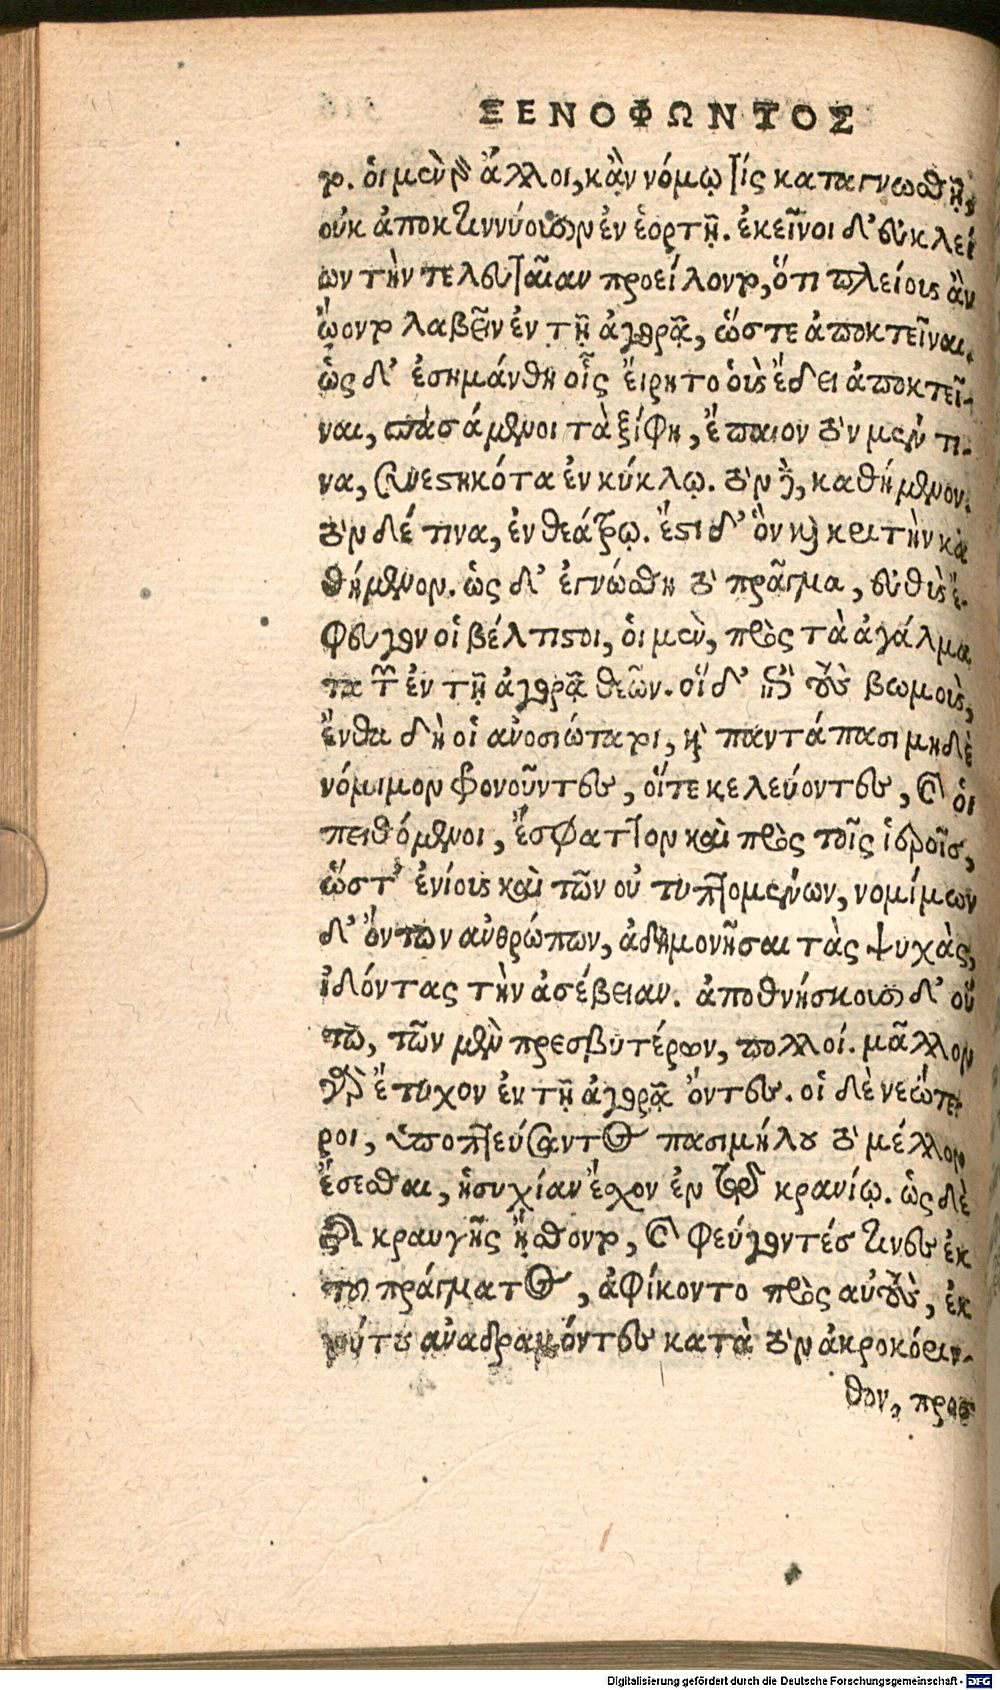 ΞΕΝΟΦΩΝΤΟΣ
το. οἱ μὲν γὸ ἄλλοι, κἂν νόμῳ τίς καταγνωσθῇ,
οὐκ ἀποκτιννύουσιν ἐν ἑορτῇ. ἐκεῖνοι δ' εὐκλεί
ων τὴν τελευταίαν προείλοντο, ὅτι πλείους ἂν
ᾤοντο λαβεῖν ἐν τῇ ἀγορᾷ, ὥστε ἀποκτεῖναι.
ὡς δ' ἐσημάνθη οἷς εἴρητο οὓς ἔδει ἀποκτεῖ-
ναι, σπασάμενοι τὰ ξίφη, ἔπαιον τὸν μέν τι-
να, συνεστηκότα ἐν κύκλῳ. τὸν δὲ, καθήμενον.
τὸν δέ τινα, ἐν θεάτρῳ. ἔστι δ' ὃν καὶ κριτὴν κα
θήμενον. ὡς δ' ἐγνώσθη τὸ πρᾶγμα, εὐθὺς ἔ-
φευγον οἱ βέλτιστοι, οἱ μὲν, πρὸς τὰ ἀγάλμα
τα τῶν ἐν τῇ ἀγορᾷ θεῶν. οἵ δ' ἐπὶ τοὺς βωμοὺς,
ἔνθα δὴ οἱ ἀνοσιώτατοι, καὶ παντάπασι μηδὲ
νόμιμον φονοῦντες, οἵτε κελεύοντες, καὶ οἱ
πειθόμενοι, ἔσφαττον καὶ πρὸς τοῖς ἱεροῖς,
ὥστ' ἐνίους καὶ τῶν οὐ τυπτομένων, νομίμων
δ' ὄντων ἀνθρώπων, ἀδημονῆσαι τὰς ψυχὰς,
ἰδόντας τὴν ἀσέβειαν. ἀποθνήσκουσι δ' οὕ
τω, τῶν μὲν πρεσβυτέρων, πολλοί. μᾶλλον
γὰρ ἔτυχον ἐν τῇ ἀγορᾷ ὄντες. οἱ δὲ νεώτε
ροι, ὑποπτεύσαντος πασιμήλου τὸ μέλλον
ἔσεσθαι, ἡσυχίαν ἔχον ἐν τῷ κρανίῳ. ὡς δὲ
τῆς κραυγῆς ᾔσθοντο, καὶ φεύγοντές τινες ἐκ
τοῦ πράγματος, ἀφίκοντο πρὸς αὐτοὺς, ἐκ
τούτου ἀναδραμόντες κατὰ τὸν ἀκροκόριν-
θον, προσ
Digitalisierung gefördert durch die Deutsche Forschungsgemeinschaft - DFG